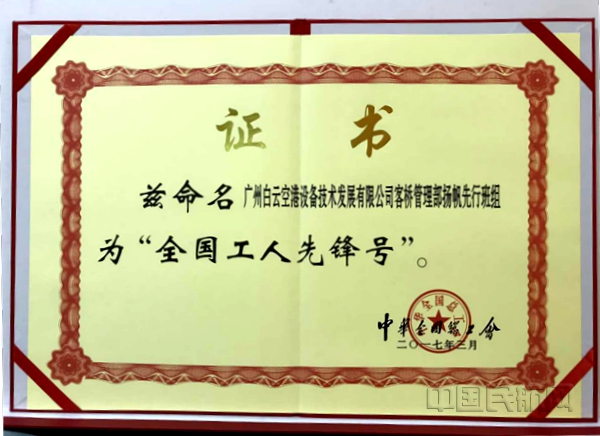 证书
兹命名 广州白云空港设备技术发展有限公司客桥管理部扬帆先行班组
为“全国工人先锋号”。
中华全国总工会
二〇一七年三月
中国民航网